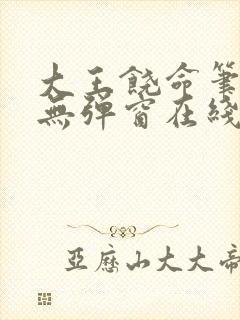 大王饶命筆
無彈窗在綫
亞歷山大大帝